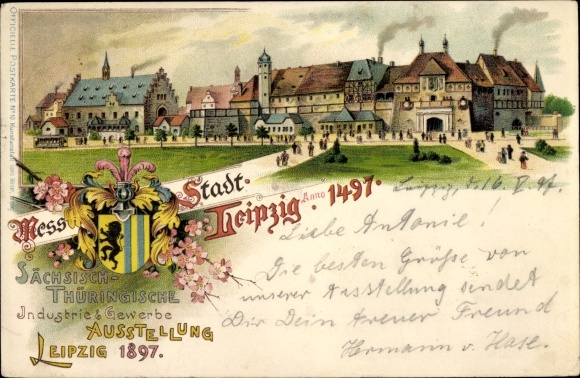 OFFICIELLE POSTKARTE No 12
Mess-Stadt-Leipzig Anno 1497.
SÄCHSISCH-
THÜRINGISCHE
Industrie & Gewerbe
AUSSTELLUNG
LEIPZIG 1897.
Leipzig, d. 16. V. 97.
Liebe Antonie!
Die besten Grüße von
unserer Ausstellung sendet
Dir Dein treuer Freund
Hermann v. Hase.